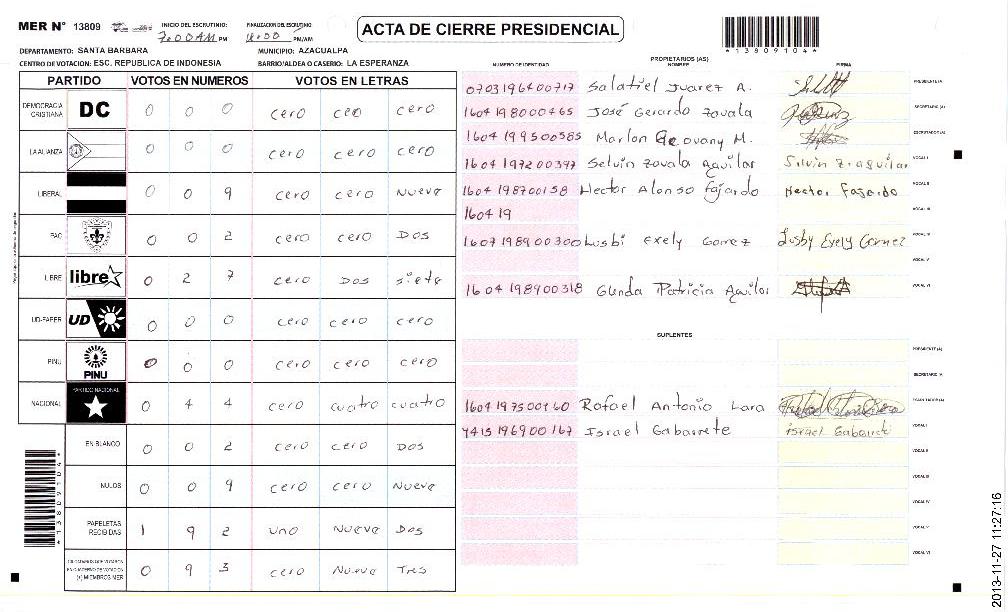 MER N° 13809 INICIO DEL ESCRUTINIO: 7:00 AM PM FINALIZACION DEL ESCRUTINIO PM/AM ACTA DE CIERRE PRESIDENCIAL *13809104*
DEPARTAMENTO: SANTA BARBARA MUNICIPIO: AZACUALPA
CENTRO DE VOTACION: ESC. REPUBLICA DE INDONESIA BARRIO/ALDEA O CASERIO: LA ESPERANZA
PARTIDO VOTOS EN NUMEROS VOTOS EN LETRAS
DEMOCRACIA CRISTIANA DC 0 0 0 cero cero cero
LA ALIANZA 0 0 0 cero cero cero
LIBERAL 0 0 9 cero cero Nueve
PAC 0 0 2 cero cero Dos
LIBRE libre 0 2 7 cero Dos siete
UD-FAPER UD 0 0 0 cero cero cero
PINU PINU 0 0 0 cero cero cero
NACIONAL PARTIDO NACIONAL 0 4 4 cero cuatro cuatro
EN BLANCO 0 0 2 cero cero Dos
NULOS 0 0 9 cero cero Nueve
PAPELETAS RECIBIDAS 1 9 2 uno Nueve Dos
CIUDADANOS QUE VOTARON EN CUADERNO DE VOTACION (+) MIEMBROS MER 0 9 3 cero Nueve Tres
PROPIETARIOS (AS)
NUMERO DE IDENTIDAD NOMBRE FIRMA
0703196400717 Salatiel Juarez A. PRESIDENTE (A)
1604198000465 José Gerardo Zavala SECRETARIO (A)
1604199500585 Marlon Geovany M. ESCRUTADOR (A)
1604197200397 Selvin Zavala Aguilar Silvin Z. aguilar VOCAL I
1604198700158 Hector Alonso Fajardo Hector Fajardo VOCAL II
160419 VOCAL III
1607198900300 Lusbi Exely Gomez Lusby Exely Gomez VOCAL IV
VOCAL V
1604198900318 Glenda Patricia Aguilar VOCAL VI
SUPLENTES
PRESIDENTE (A)
SECRETARIO (A)
1604197500160 Rafael Antonio Lara ESCRUTADOR (A)
1415196900167 Israel Gabarrete israel Gabarrete VOCAL I
VOCAL II
VOCAL III
VOCAL IV
VOCAL V
VOCAL VI
*13809104*
2013-11-27 11:27:16